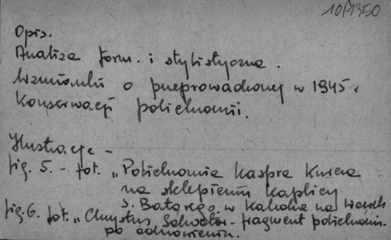 10/1950
Opis.
Analiza form. i stylistyczna.
Wzmianki o przeprowadzonej w 1945 r.
Konserwacji polichromii.
Ilustracje -
fig. 5. - fot. „Polichromia Kaspra Kurcza
na sklepieniu kaplicy
s. Batorego w Katedrze na Wawelu
fig. 6. fot. „Chrystus Salwator - fragment polichrom.
po odnowieniu.